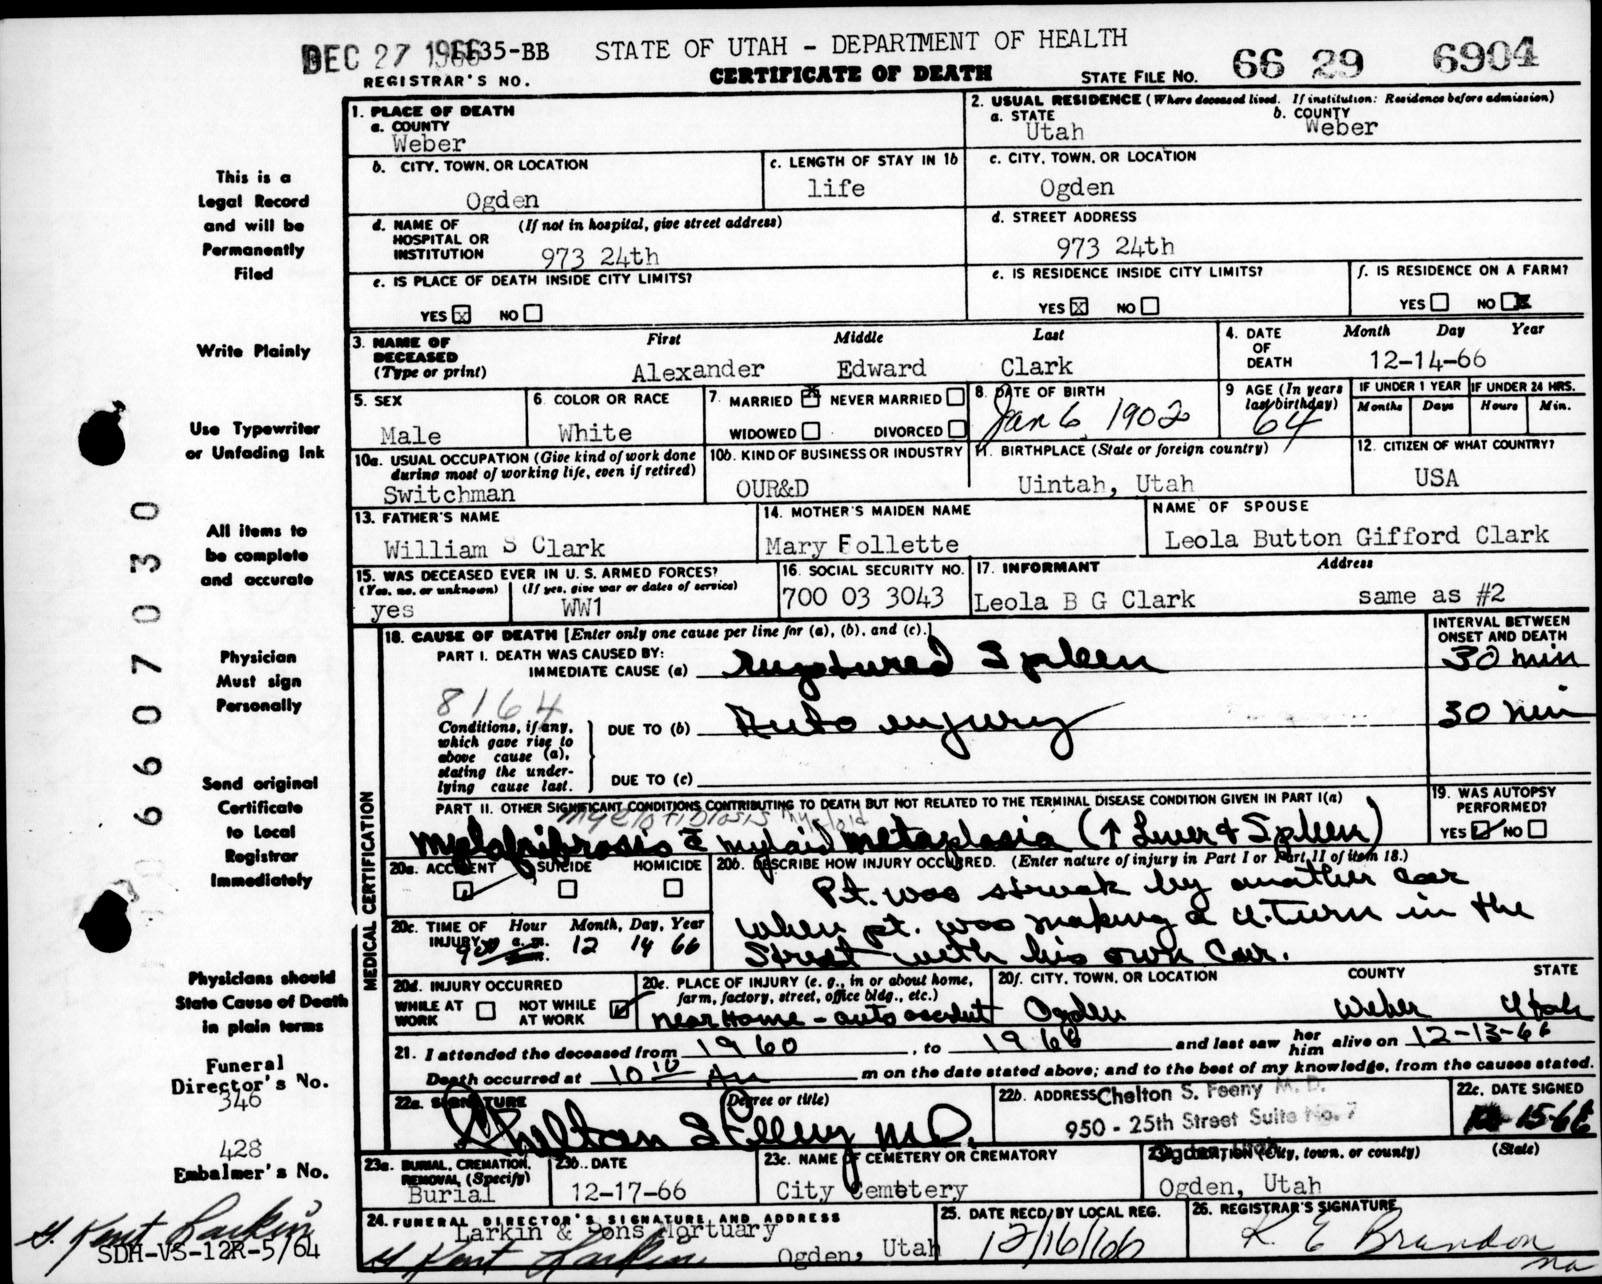 DEC 27 1966 1135-BB STATE OF UTAH - DEPARTMENT OF HEALTH
REGISTRAR'S NO. CERTIFICATE OF DEATH STATE FILE NO. 66 29 6904
This is a
Legal Record
and will be
Permanently
Filed
Write Plainly
Use Typewriter
or Unfading Ink
All items to
be complete
and accurate
Physician
Must sign
Personally
Send original
Certificate
to Local
Registrar
Immediately
Physicians should
State Cause of Death
in plain terms
Funeral
Director's No.
346
428
Embalmer's No.
G. Kent Larkin
SDH-VS-12R-5/64
6607030
1. PLACE OF DEATH
a. COUNTY
Weber
2. USUAL RESIDENCE (Where deceased lived. If institution: Residence before admission)
a. STATE b. COUNTY
Utah Weber
b. CITY, TOWN, OR LOCATION
Ogden
c. LENGTH OF STAY IN 1b
life
c. CITY, TOWN, OR LOCATION
Ogden
d. NAME OF (If not in hospital, give street address)
HOSPITAL OR
INSTITUTION 973 24th
d. STREET ADDRESS
973 24th
e. IS PLACE OF DEATH INSIDE CITY LIMITS?
YES X NO
e. IS RESIDENCE INSIDE CITY LIMITS?
YES X NO
f. IS RESIDENCE ON A FARM?
YES NO X
3. NAME OF First Middle Last
DECEASED
(Type or print) Alexander Edward Clark
4. DATE Month Day Year
OF
DEATH 12-14-66
5. SEX
Male
6. COLOR OR RACE
White
7. MARRIED X NEVER MARRIED
WIDOWED DIVORCED
8. DATE OF BIRTH
Jan 6, 1902
9 AGE (In years
last birthday)
64
IF UNDER 1 YEAR IF UNDER 24 HRS.
Months Days Hours Min.
10a. USUAL OCCUPATION (Give kind of work done
during most of working life, even if retired)
Switchman
10b. KIND OF BUSINESS OR INDUSTRY
OUR&D
11. BIRTHPLACE (State or foreign country)
Uintah, Utah
12. CITIZEN OF WHAT COUNTRY?
USA
13. FATHER'S NAME
William S Clark
14. MOTHER'S MAIDEN NAME
Mary Follette
NAME OF SPOUSE
Leola Button Gifford Clark
15. WAS DECEASED EVER IN U. S. ARMED FORCES?
(Yes, no, or unknown) (If yes, give war or dates of service)
yes WW1
16. SOCIAL SECURITY NO.
700 03 3043
17. INFORMANT Address
Leola B G Clark same as #2
MEDICAL CERTIFICATION
18. CAUSE OF DEATH [Enter only one cause per line for (a), (b), and (c).]
INTERVAL BETWEEN
ONSET AND DEATH
PART I. DEATH WAS CAUSED BY:
IMMEDIATE CAUSE (a) ruptured Spleen 30 min
8164
Conditions, if any,
which gave rise to
above cause (a),
stating the under-
lying cause last.
DUE TO (b) Auto injury 30 min
DUE TO (c)
PART II. OTHER SIGNIFICANT CONDITIONS CONTRIBUTING TO DEATH BUT NOT RELATED TO THE TERMINAL DISEASE CONDITION GIVEN IN PART I(a)
myelofibrosis myeloid
myelofibrosis c̄ myloid metaplasia (↑ Liver & Spleen)
19. WAS AUTOPSY
PERFORMED?
YES ✓ NO
20a. ACCIDENT SUICIDE HOMICIDE
20b. DESCRIBE HOW INJURY OCCURRED. (Enter nature of injury in Part I or Part II of item 18.)
Pt. was struck by another car
when pt. was making a U-turn in the
Street with his own Car.
20c. TIME OF Hour Month, Day, Year
INJURY a. m. 12 14 66
20d. INJURY OCCURRED
WHILE AT WORK NOT WHILE AT WORK ✓
20e. PLACE OF INJURY (e. g., in or about home,
farm, factory, street, office bldg., etc.)
near Home - auto accident
20f. CITY, TOWN, OR LOCATION COUNTY STATE
Ogden Weber Utah
21. I attended the deceased from 1960, to 1966 and last saw her him alive on 12-13-66
Death occurred at 10 10 AM m on the date stated above; and to the best of my knowledge, from the causes stated.
22a. SIGNATURE (Degree or title)
Chelton S Feeny M.D.
22b. ADDRESS Chelton S. Feeny M. D.
950 - 25th Street Suite No. 7
Ogden, Utah
22c. DATE SIGNED
12-15-66
23a. BURIAL, CREMATION,
REMOVAL (Specify)
Burial
23b. DATE
12-17-66
23c. NAME OF CEMETERY OR CREMATORY
City Cemetery
23d. LOCATION (City, town, or county) (State)
Ogden, Utah
24. FUNERAL DIRECTOR'S SIGNATURE AND ADDRESS
Larkin & Sons Mortuary
G Kent Larkin Ogden, Utah
25. DATE REC'D BY LOCAL REG.
12/16/66
26. REGISTRAR'S SIGNATURE
K. E Brandon
na